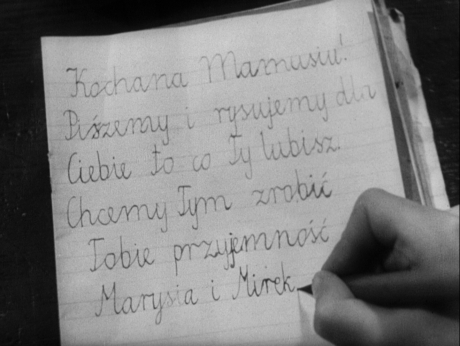 Kochana Mamusiu!
Piszemy i rysujemy dla
Ciebie to co Ty lubisz.
Chcemy Tym zrobić
Tobie przyjemność
Marysia i Mirek